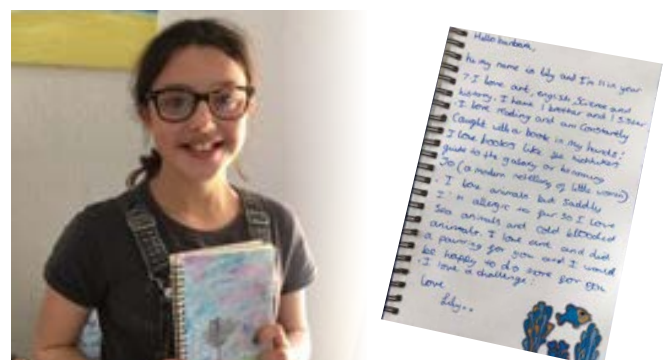 Hello barbara,
hi my name is lily and I'm 11 in year
7. I love art, english, science and
history. I have 1 brother and 1 sister.
I love reading and am constantly
caught with a book in my hands!
I love books like the hitchhikers
guide to the galaxy or becoming
Jo (a modern retelling of little women)
I love animals but saddly
I'm allergic to fur so I love
Sea animals and cold blooded
animals. I love art and did
a painting for you and I would
be happy to do more for you
I love a challenge!
love
Lily..